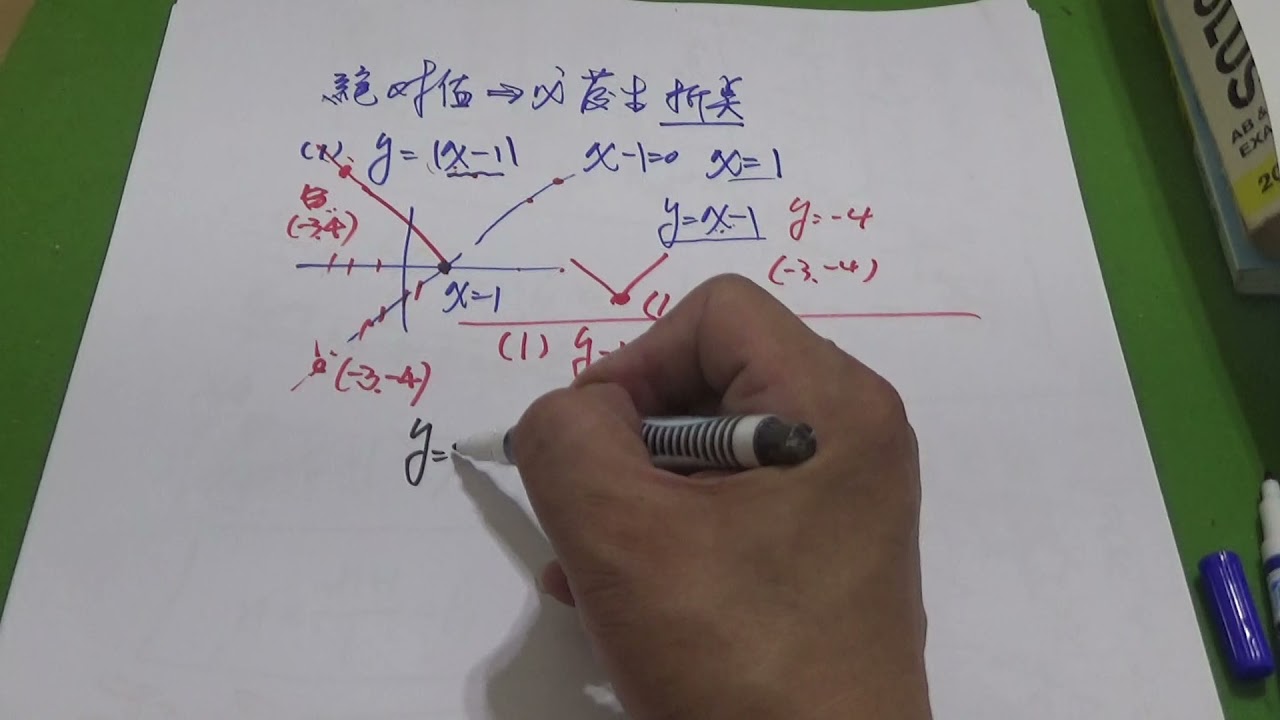 絕对值⇒必發生折美
(1). y=|x-1| x-1=0 x=1
y=x-1 y=-4
(-3.4)
(-3.-4)
x=1
(1
(-3.-4)
(1) y=
y=
AB &
EXA
20